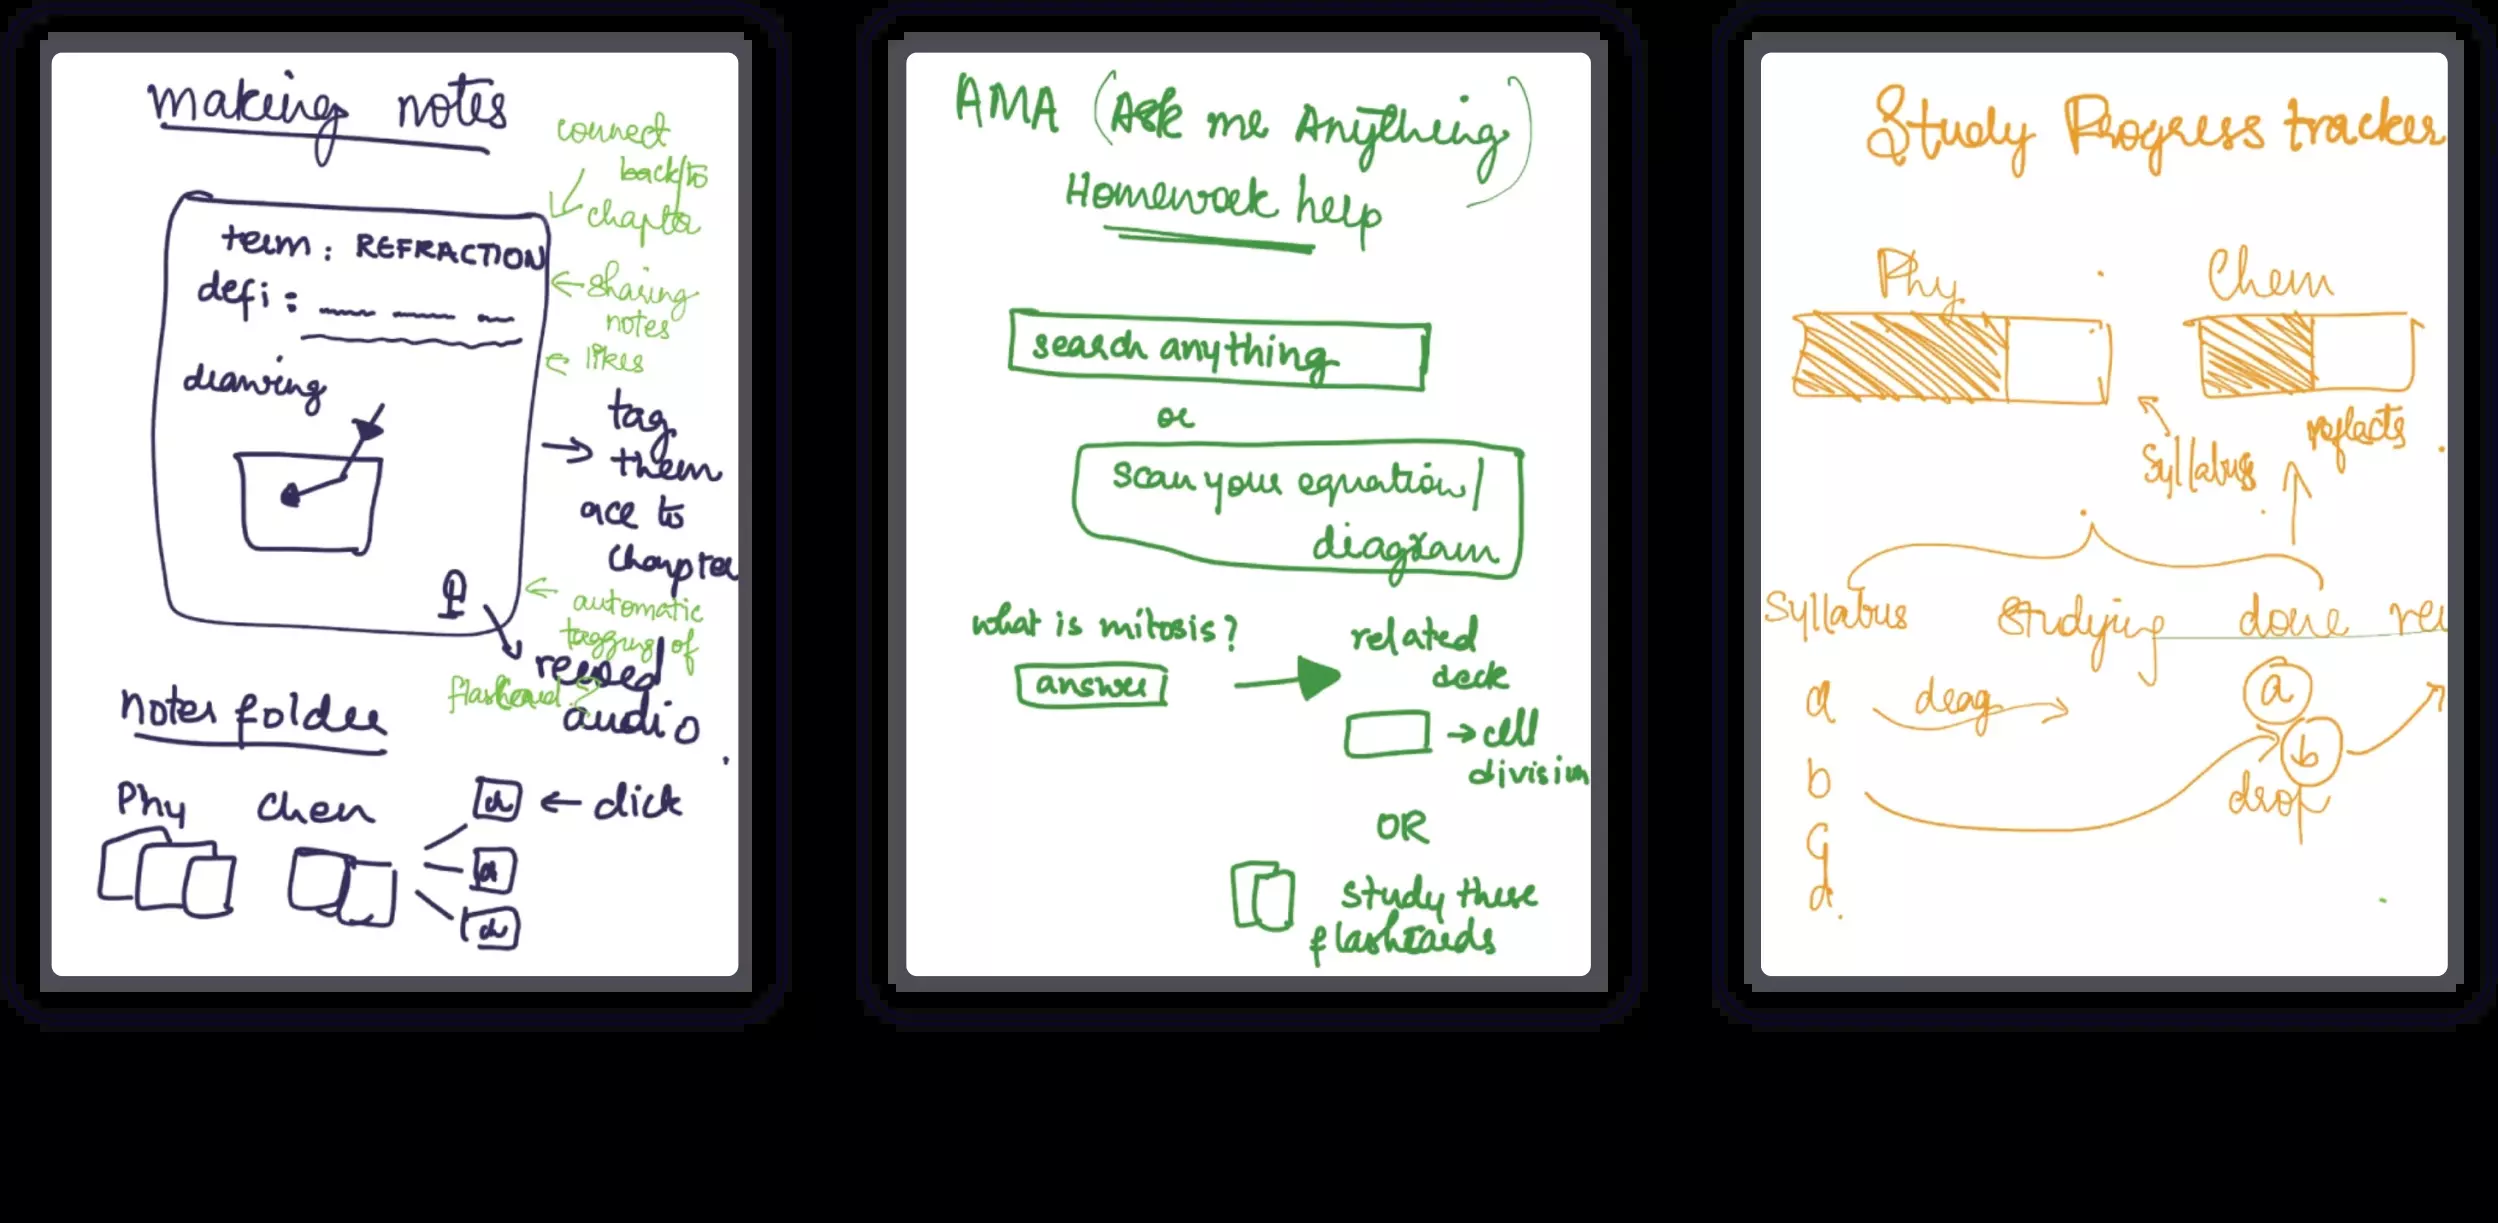 making notes
connect
back to
chapter
term : REFRACTION
defi :
sharing
notes
likes
drawing
tag
them
acc to
chapter
automatic
tagging of
flashcard ?
record
audio
notes folder
Phy chem
ch ← click
ch
ch
AMA (Ask me Anything)
Homework help
search anything
or
scan your equation/
diagram
what is mitosis?
answer
related
deck
→ cell
division
OR
study these
flashcards
Study Progress tracker
Phy Chem
syllabus
reflects
Syllabus studying done
a drag a
b b
drop
c
d